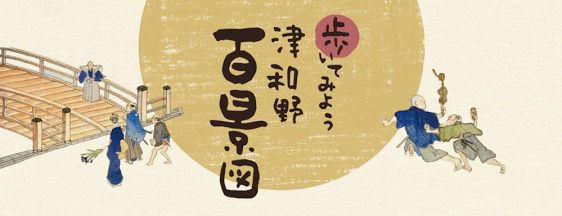 歩いてみよう
津和野
百景図